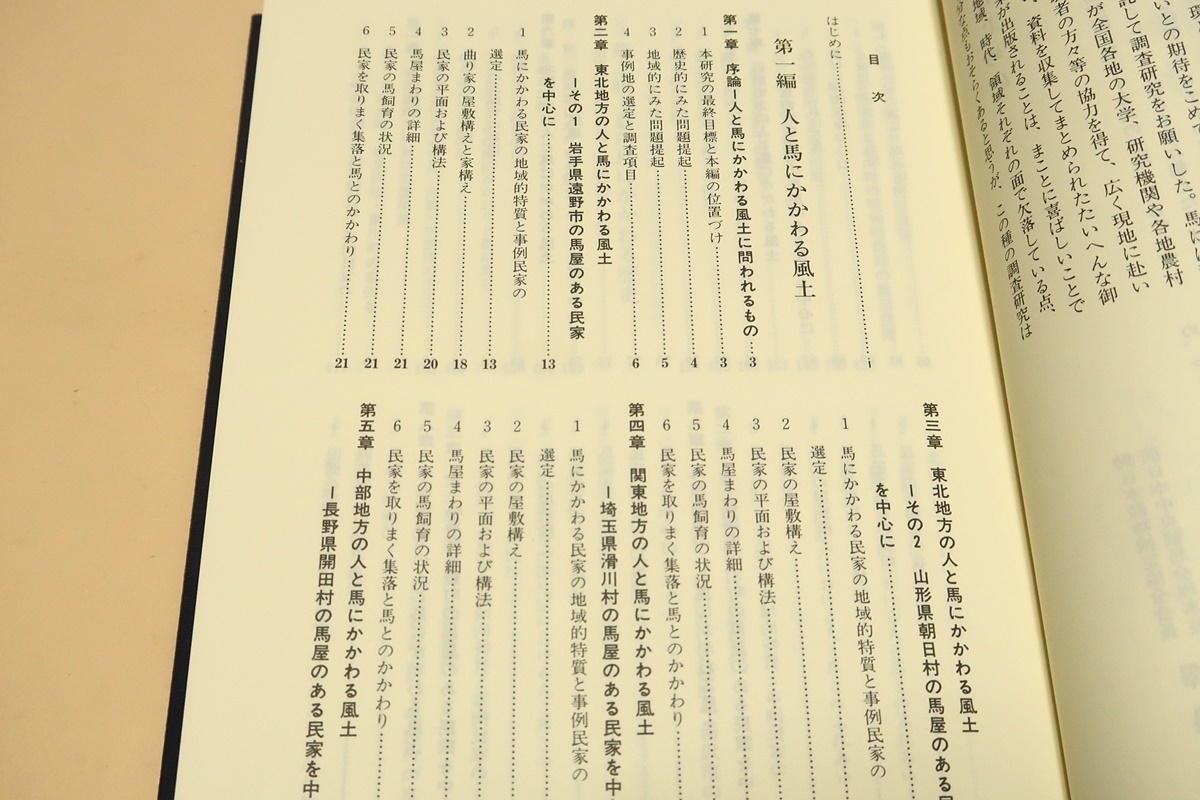 いとの期待をこめて
記して調査研究をお願いした。馬には
が全国各地の大学、研究機関や各地農村
者の方々等の協力を得て、広く現地に赴い
資料を収集してまとめられたたいへんな御
業が出版されることは、まことに喜ばしいことで
地域、時代、領域それぞれの面で欠落している点、
分な点もおそらくあると思うが、この種の調査研究は
目次
はじめに……i
第一編 人と馬にかかわる風土
第一章 序論―人と馬にかかわる風土に問われるもの…3
1 本研究の最終目標と本編の位置づけ……3
2 歴史的にみた問題提起……4
3 地域的にみた問題提起……5
4 事例地の選定と調査項目……6
第二章 東北地方の人と馬にかかわる風土
―その1 岩手県遠野市の馬屋のある民家
を中心に……13
1 馬にかかわる民家の地域的特質と事例民家の
選定……13
2 曲り家の屋敷構えと家構え……18
3 民家の平面および構法……20
4 馬屋まわりの詳細……21
5 民家の馬飼育の状況……21
6 民家を取りまく集落と馬とのかかわり……21
第三章 東北地方の人と馬にかかわる風土
―その2 山形県朝日村の馬屋のある民
を中心に……
1 馬にかかわる民家の地域的特質と事例民家の
選定……
2 民家の屋敷構え……
3 民家の平面および構法……
4 馬屋まわりの詳細……
5 民家の馬飼育の状況……
6 民家を取りまく集落と馬とのかかわり……
第四章 関東地方の人と馬にかかわる風土
―埼玉県滑川村の馬屋のある民家を中
1 馬にかかわる民家の地域的特質と事例民家の
選定……
2 民家の屋敷構え……
3 民家の平面および構法……
4 馬屋まわりの詳細……
5 民家の馬飼育の状況……
6 民家を取りまく集落と馬とのかかわり……
第五章 中部地方の人と馬にかかわる風土
―長野県開田村の馬屋のある民家を中